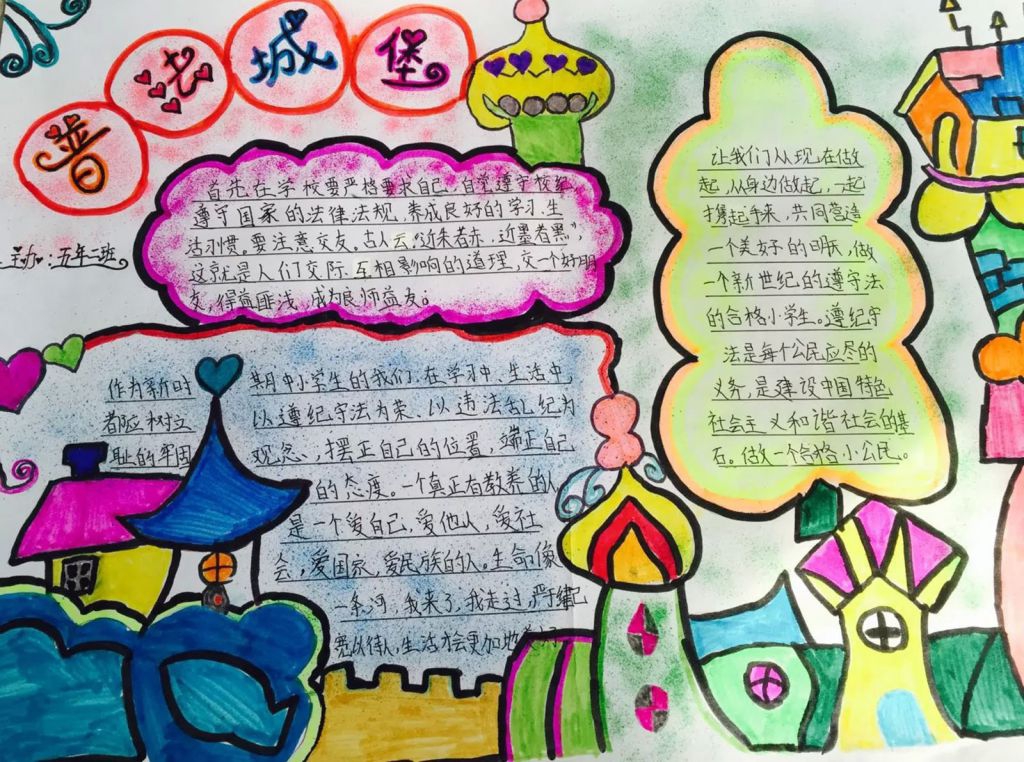 普法城堡
主办:五年二班。
首先在学校要严格要求自己,自觉遵守校纪,
遵守国家的法律法规,养成良好的学习、生
活习惯。要注意交友。古人云“近朱者赤,近墨者黑”,
这就是人们交际、互相影响的道理,交一个好朋
友,得益匪浅,成为良师益友。
作为新时期中小学生的我们,在学习中、生活中,
都应树立以遵纪守法为荣、以违法乱纪为
耻的牢固观念,摆正自己的位置,端正自己
的态度。一个真正有教养的人
是一个爱自己,爱他人,爱社
会,爱国家,爱民族的人。生命像
一条河,我来了,我走过,严于律己
宽以待人,生活才会更加地美好
让我们从现在做
起,从身边做起,一起
携起手来,共同营造
一个美好的明天,做
一个新世纪的遵守法
的合格小学生。遵纪守
法是每个公民应尽的
义务,是建设中国特色
社会主义和谐社会的基
石。做一个合格小公民。